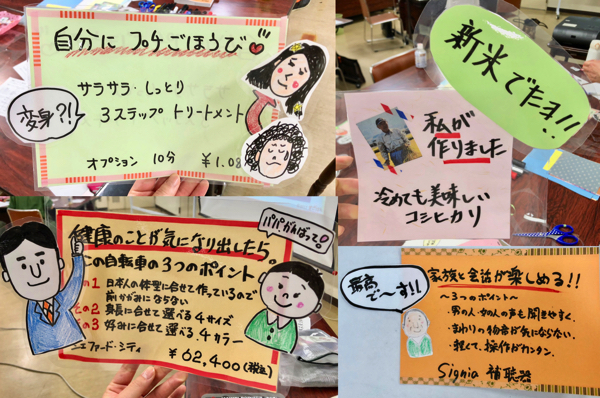 自分に プチごほうび
サラサラ・しっとり
3ステップ トリートメント
変身?!
オプション 10分 ¥1.08
新米でたョ!!
私が
作りました
冷めても美味しい
コシヒカリ
健康のことが気になり出したら。
この自転車の3つのポイント
パパがんばって!
その1 日本人の体型に合せて作っているので
前かがみにならない
その2 身長に合せて選べる4サイズ
その3 好みに合せて選べる4カラー
シェファード・シティ
¥62,400(税込)
最高
で〜す!!
家族と会話が楽しめる!!
〜3つのポイント〜
・男の人・女の人の声も聞きやすく。
・まわりの物音が気にならない。
・軽くて、操作がカンタン。
Signia 補聴器